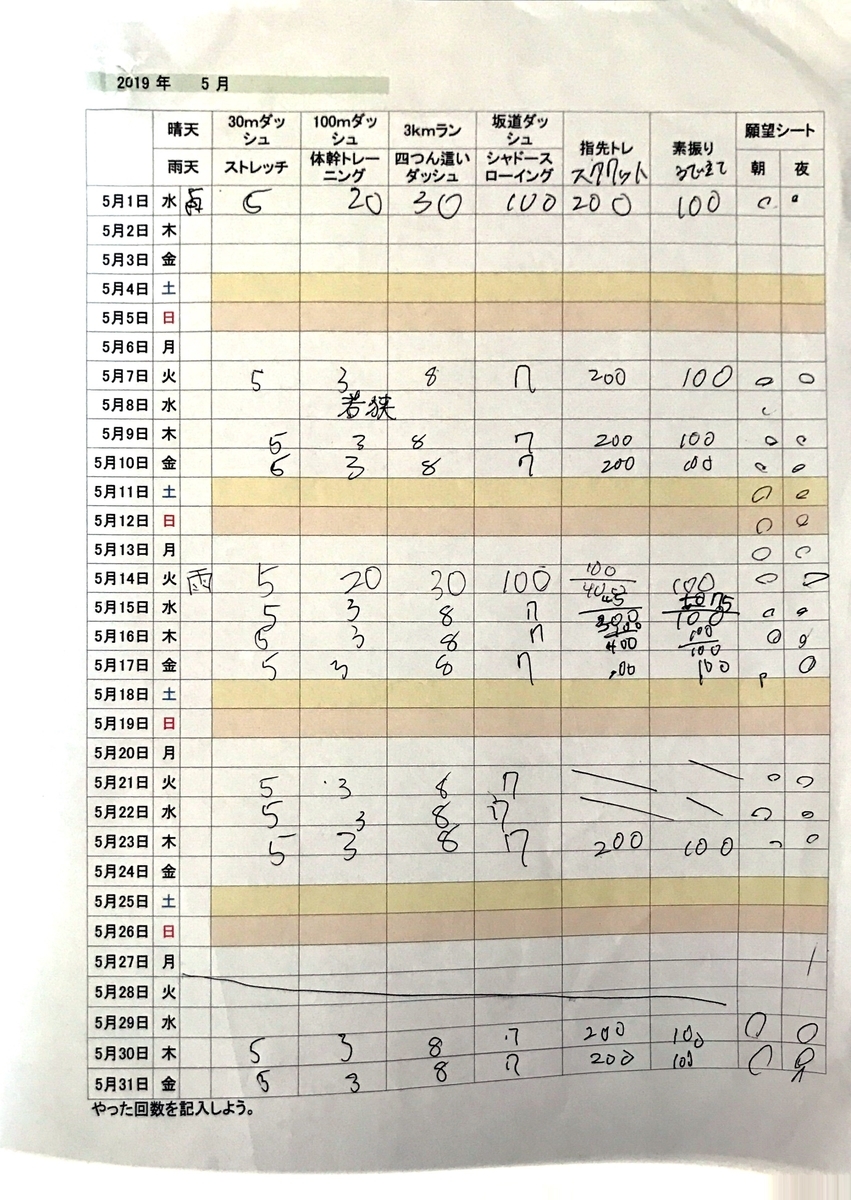 2019 年 5 月
晴天 30mダッシュ 100mダッシュ 3kmラン 坂道ダッシュ 指先トレ 素振り 願望シート
雨天 ストレッチ 体幹トレーニング 四つん這いダッシュ シャドースローイング スクワット うで立て 朝 夜
5月1日 水 雨 5 20 30 100 200 100 ○ ○
5月2日 木
5月3日 金
5月4日 土
5月5日 日
5月6日 月
5月7日 火 5 3 8 7 200 100 ○ ○
5月8日 水 若狭
5月9日 木 5 3 8 7 200 100 ○ ○
5月10日 金 5 3 8 7 200 100 ○ ○
5月11日 土 ○ ○
5月12日 日 ○ ○
5月13日 月 ○ ○
5月14日 火 雨 5 20 30 100 100 100 ○ ○
5月15日 水 5 3 8 7 300 100 ○ ○
5月16日 木 5 3 8 7 400 100 100 ○ ○
5月17日 金 5 3 8 7 100 ○
5月18日 土
5月19日 日
5月20日 月
5月21日 火 5 3 8 7 ○ ○
5月22日 水 5 3 8 7 ○ ○
5月23日 木 5 3 8 7 200 100 ○
5月24日 金
5月25日 土
5月26日 日
5月27日 月
5月28日 火
5月29日 水 ○ ○
5月30日 木 5 3 8 7 200 100 ○ ○
5月31日 金 5 3 8 7 200 100
やった回数を記入しよう。